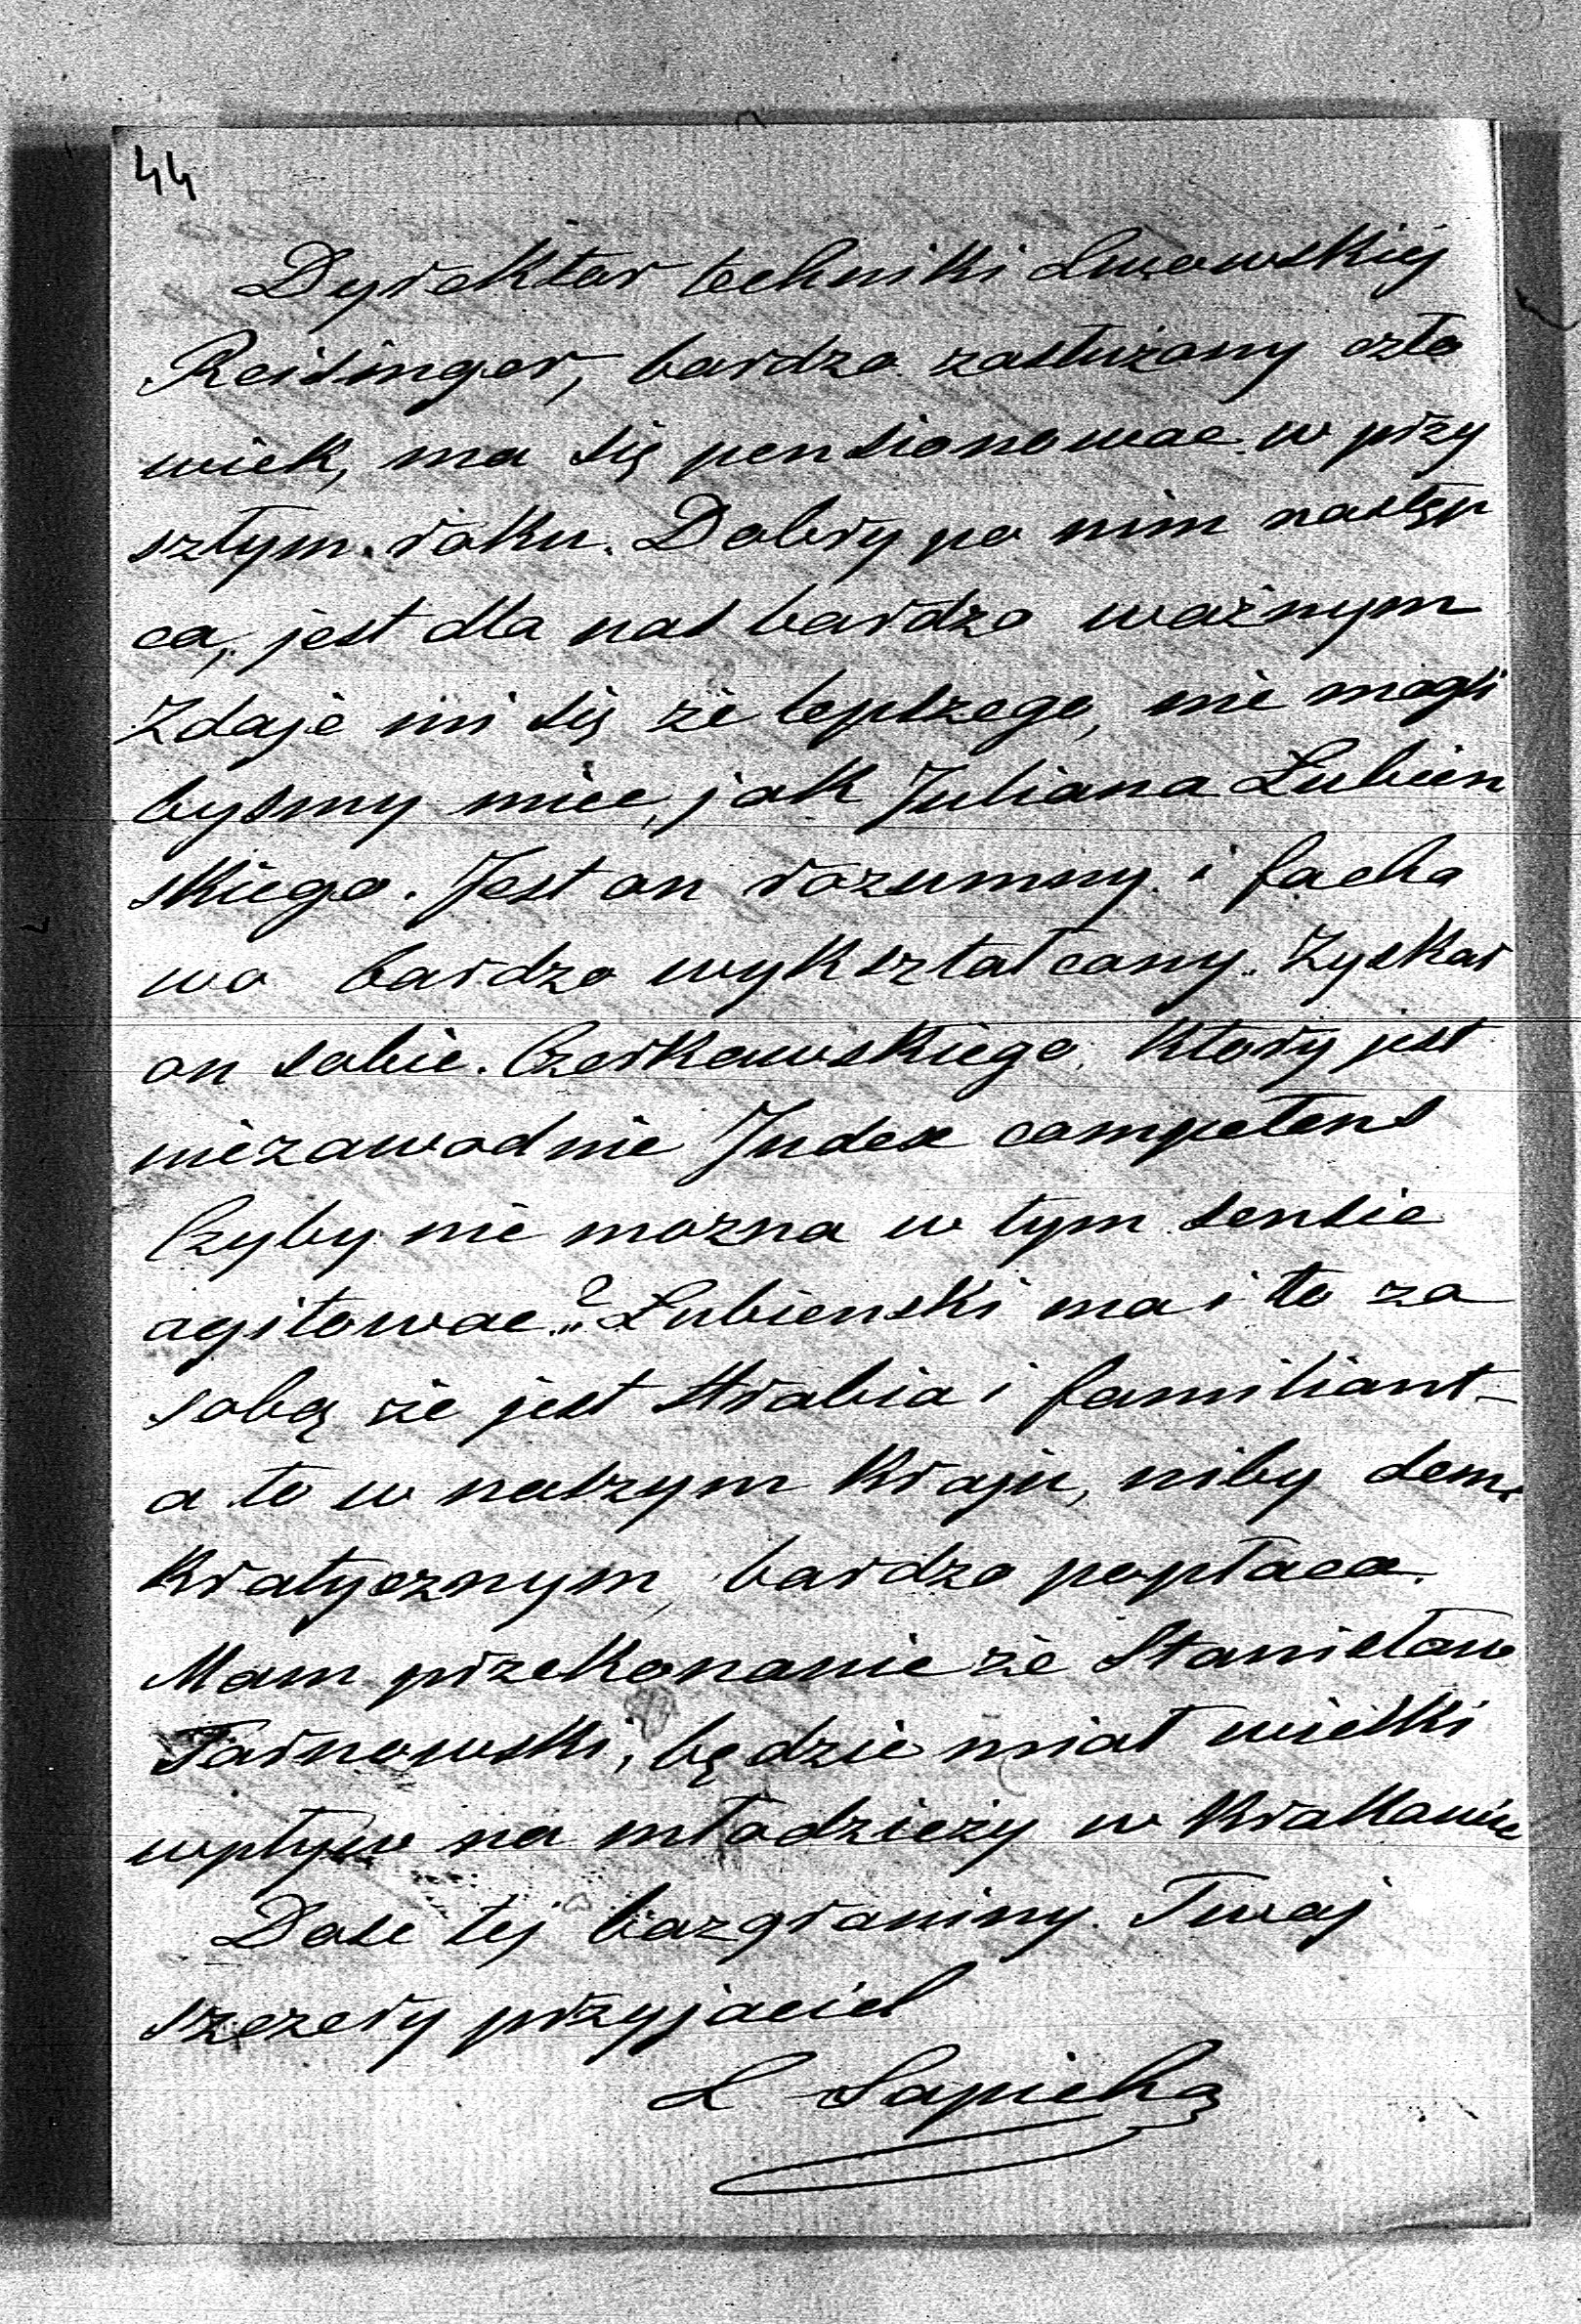 44
Dyrektor techniki Lwowskiej
Reisinger, bardzo zasłużony czło
wiek, ma się pensionowac w przy
szłym roku. Dobry po nim następ
ca, jest dla nas bardzo ważnym
Zdaje mi się że lepszego, nie mogli
bysmy miec, jak Juliana Łubien
skiego. Jest on rozumny i facho
wo bardzo wykształcony. Zyskał
on sobie Czerkawskiego, który jest
niezawodnie Judex competens
Czyby nie mozna w tym sensie
agitowac? Łubienski ma i to za
sobą że jest Hrabia i familiant –
a to w naszym kraju, niby demo
kratycznym, bardzo popłaca.
Mam przekonanie że Stanisław
Tarnowski, będzie miał wielki
wpływ na młodzieży w Krakowie
Dosc tej bazgraniny. Twoj
szczery przyjaciel
L Sapieha